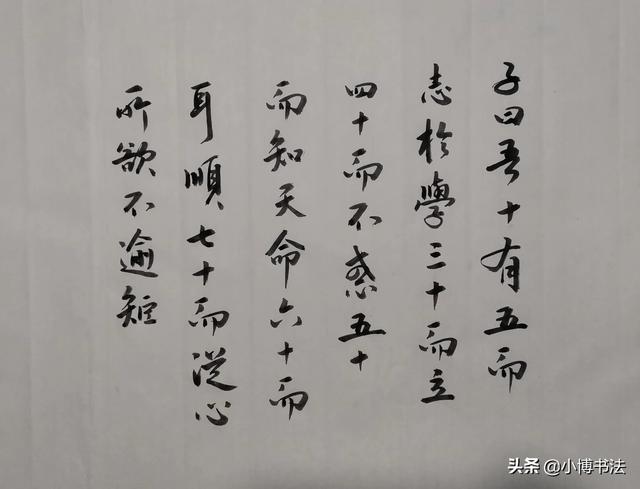 子曰吾十有五而
志於學三十而立
四十而不惑五十
而知天命六十而
耳順七十而從心
所欲不逾矩
头条 @小博书法